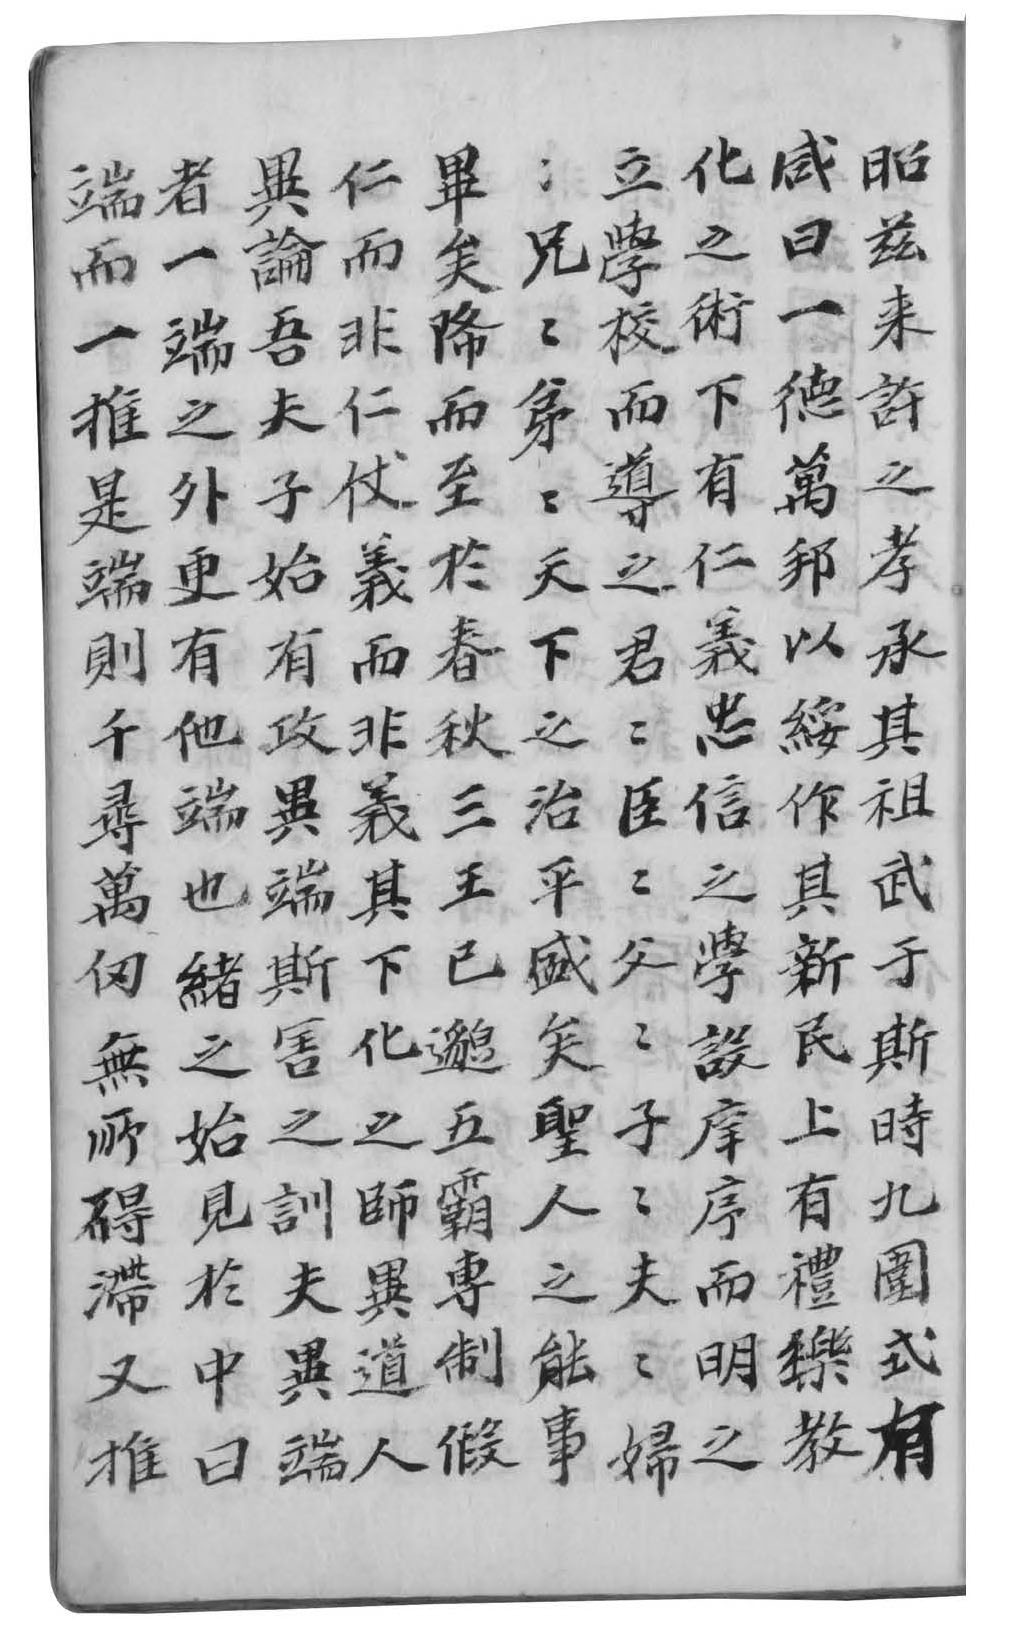 昭茲来許之孝承其祖武于斯時九圍式有
咸曰一德萬邦以綏作其新民上有禮樂教
化之術下有仁義忠信之學設庠序而明之
立學校而導之君〻臣〻父〻子〻夫〻婦
〻兄〻弟〻天下之治平盛矣聖人之能事
畢矣降而至於春秋三王已邈五霸專制假
仁而非仁仗義而非義其下化之師異道人
異論吾夫子始有攻異端斯害之訓夫異端
者一端之外更有他端也緒之始見於中曰
端而一推是端則千尋萬仞無所碍滯又推